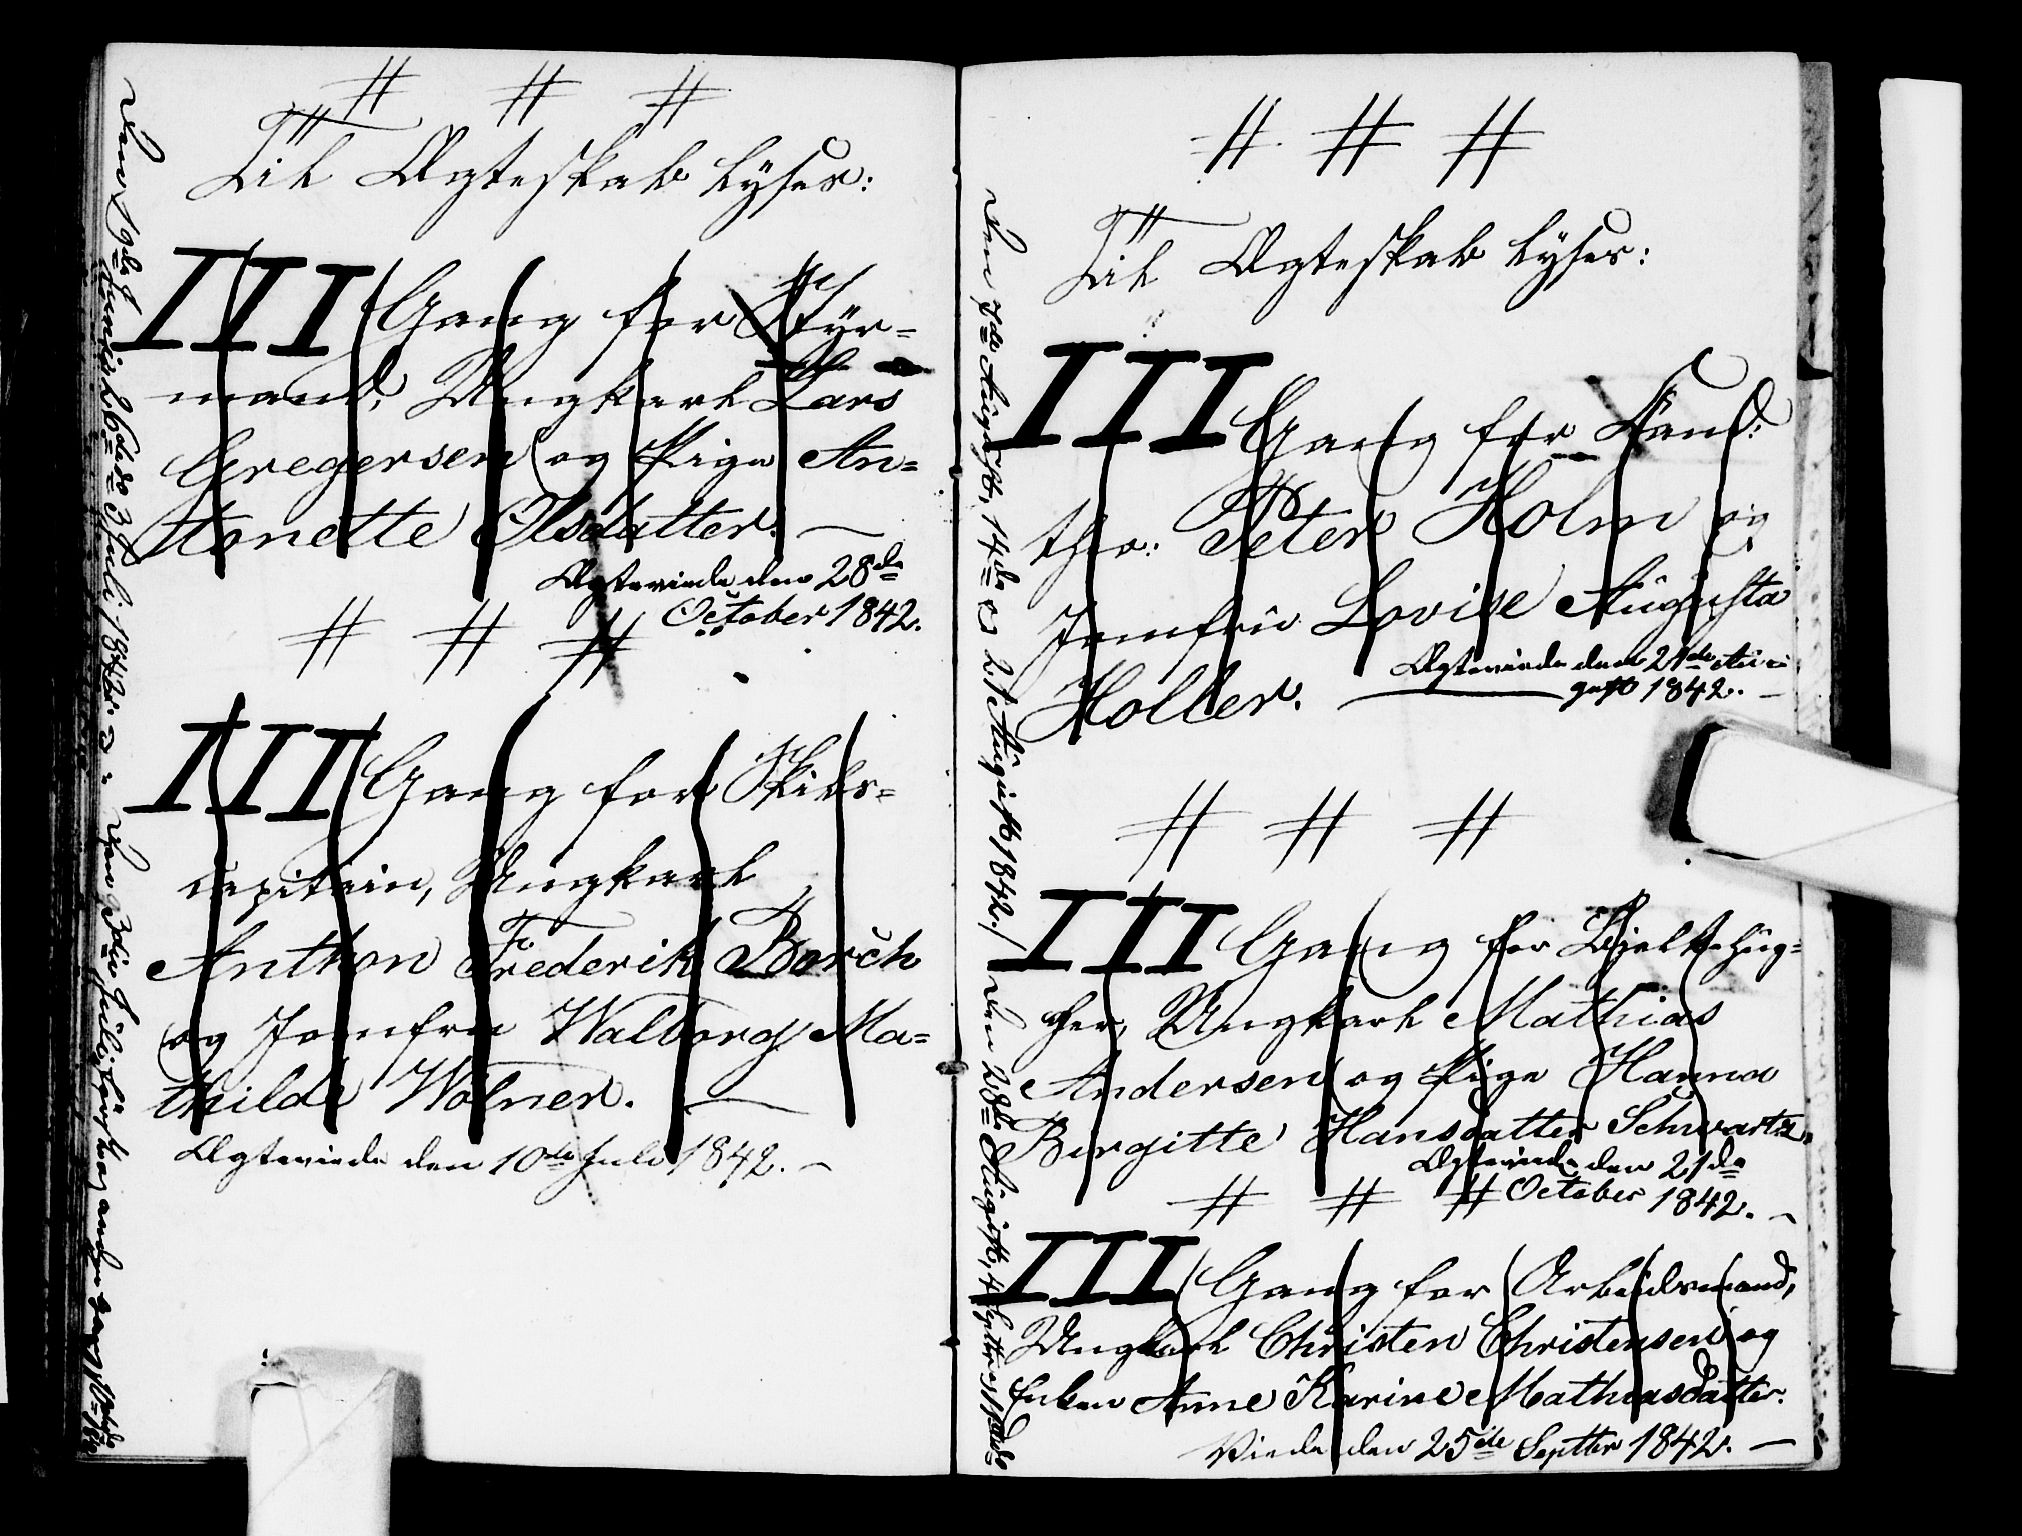 # # #
Til Ægteskab lyses:
III Gang for Styr=
mand, Ungkarl Lars
Gregersen og Pige An=
tonette Olsdatter. —
Ægteviede den 28de
October 1842.
# # #
III Gang for Skibs=
capitain, Ungkarl
Anthon Frederik Borch
og Jomfru Walborg Ma=
thilde Wølner. —
Ægteviede den 10de Juli 1842. —
# # #
Til Ægteskab lyses:
III Gang for Kand:
theo: Peter Holm og
Jomfrú Lovise Augusta
Holler.
Ægteviede den 21de Au=
gust 1842. —
# # #
III Gang for Bielkehúg=
ger, Ungkarl Mathias
Andersen og Pige Hanna
Birgitte Hansdatter Schwartz.
Ægteviede den 21de
October 1842. —
# # #
III Gang for Arbeidsmand,
Ungkarl Christen Christensen og
Enken Anne Karine Mathiasdatter.
Viede den 25de Septbr 1842. —
Den 7de August, 14de og 21 August 1842./ Den 28de August, 4